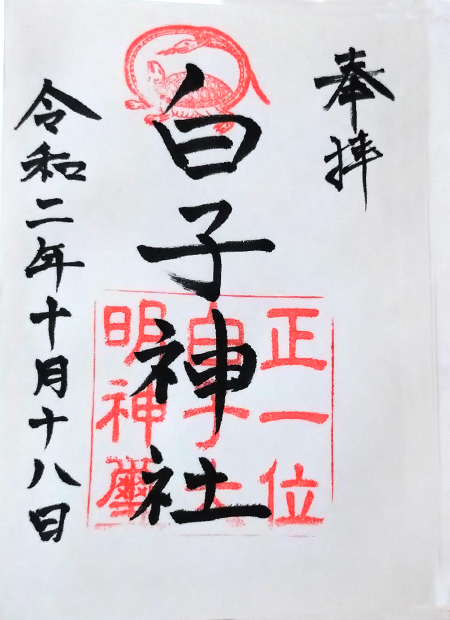 奉拝
白子神社
正一位
白子大
明神璽
令和二年十月十八日